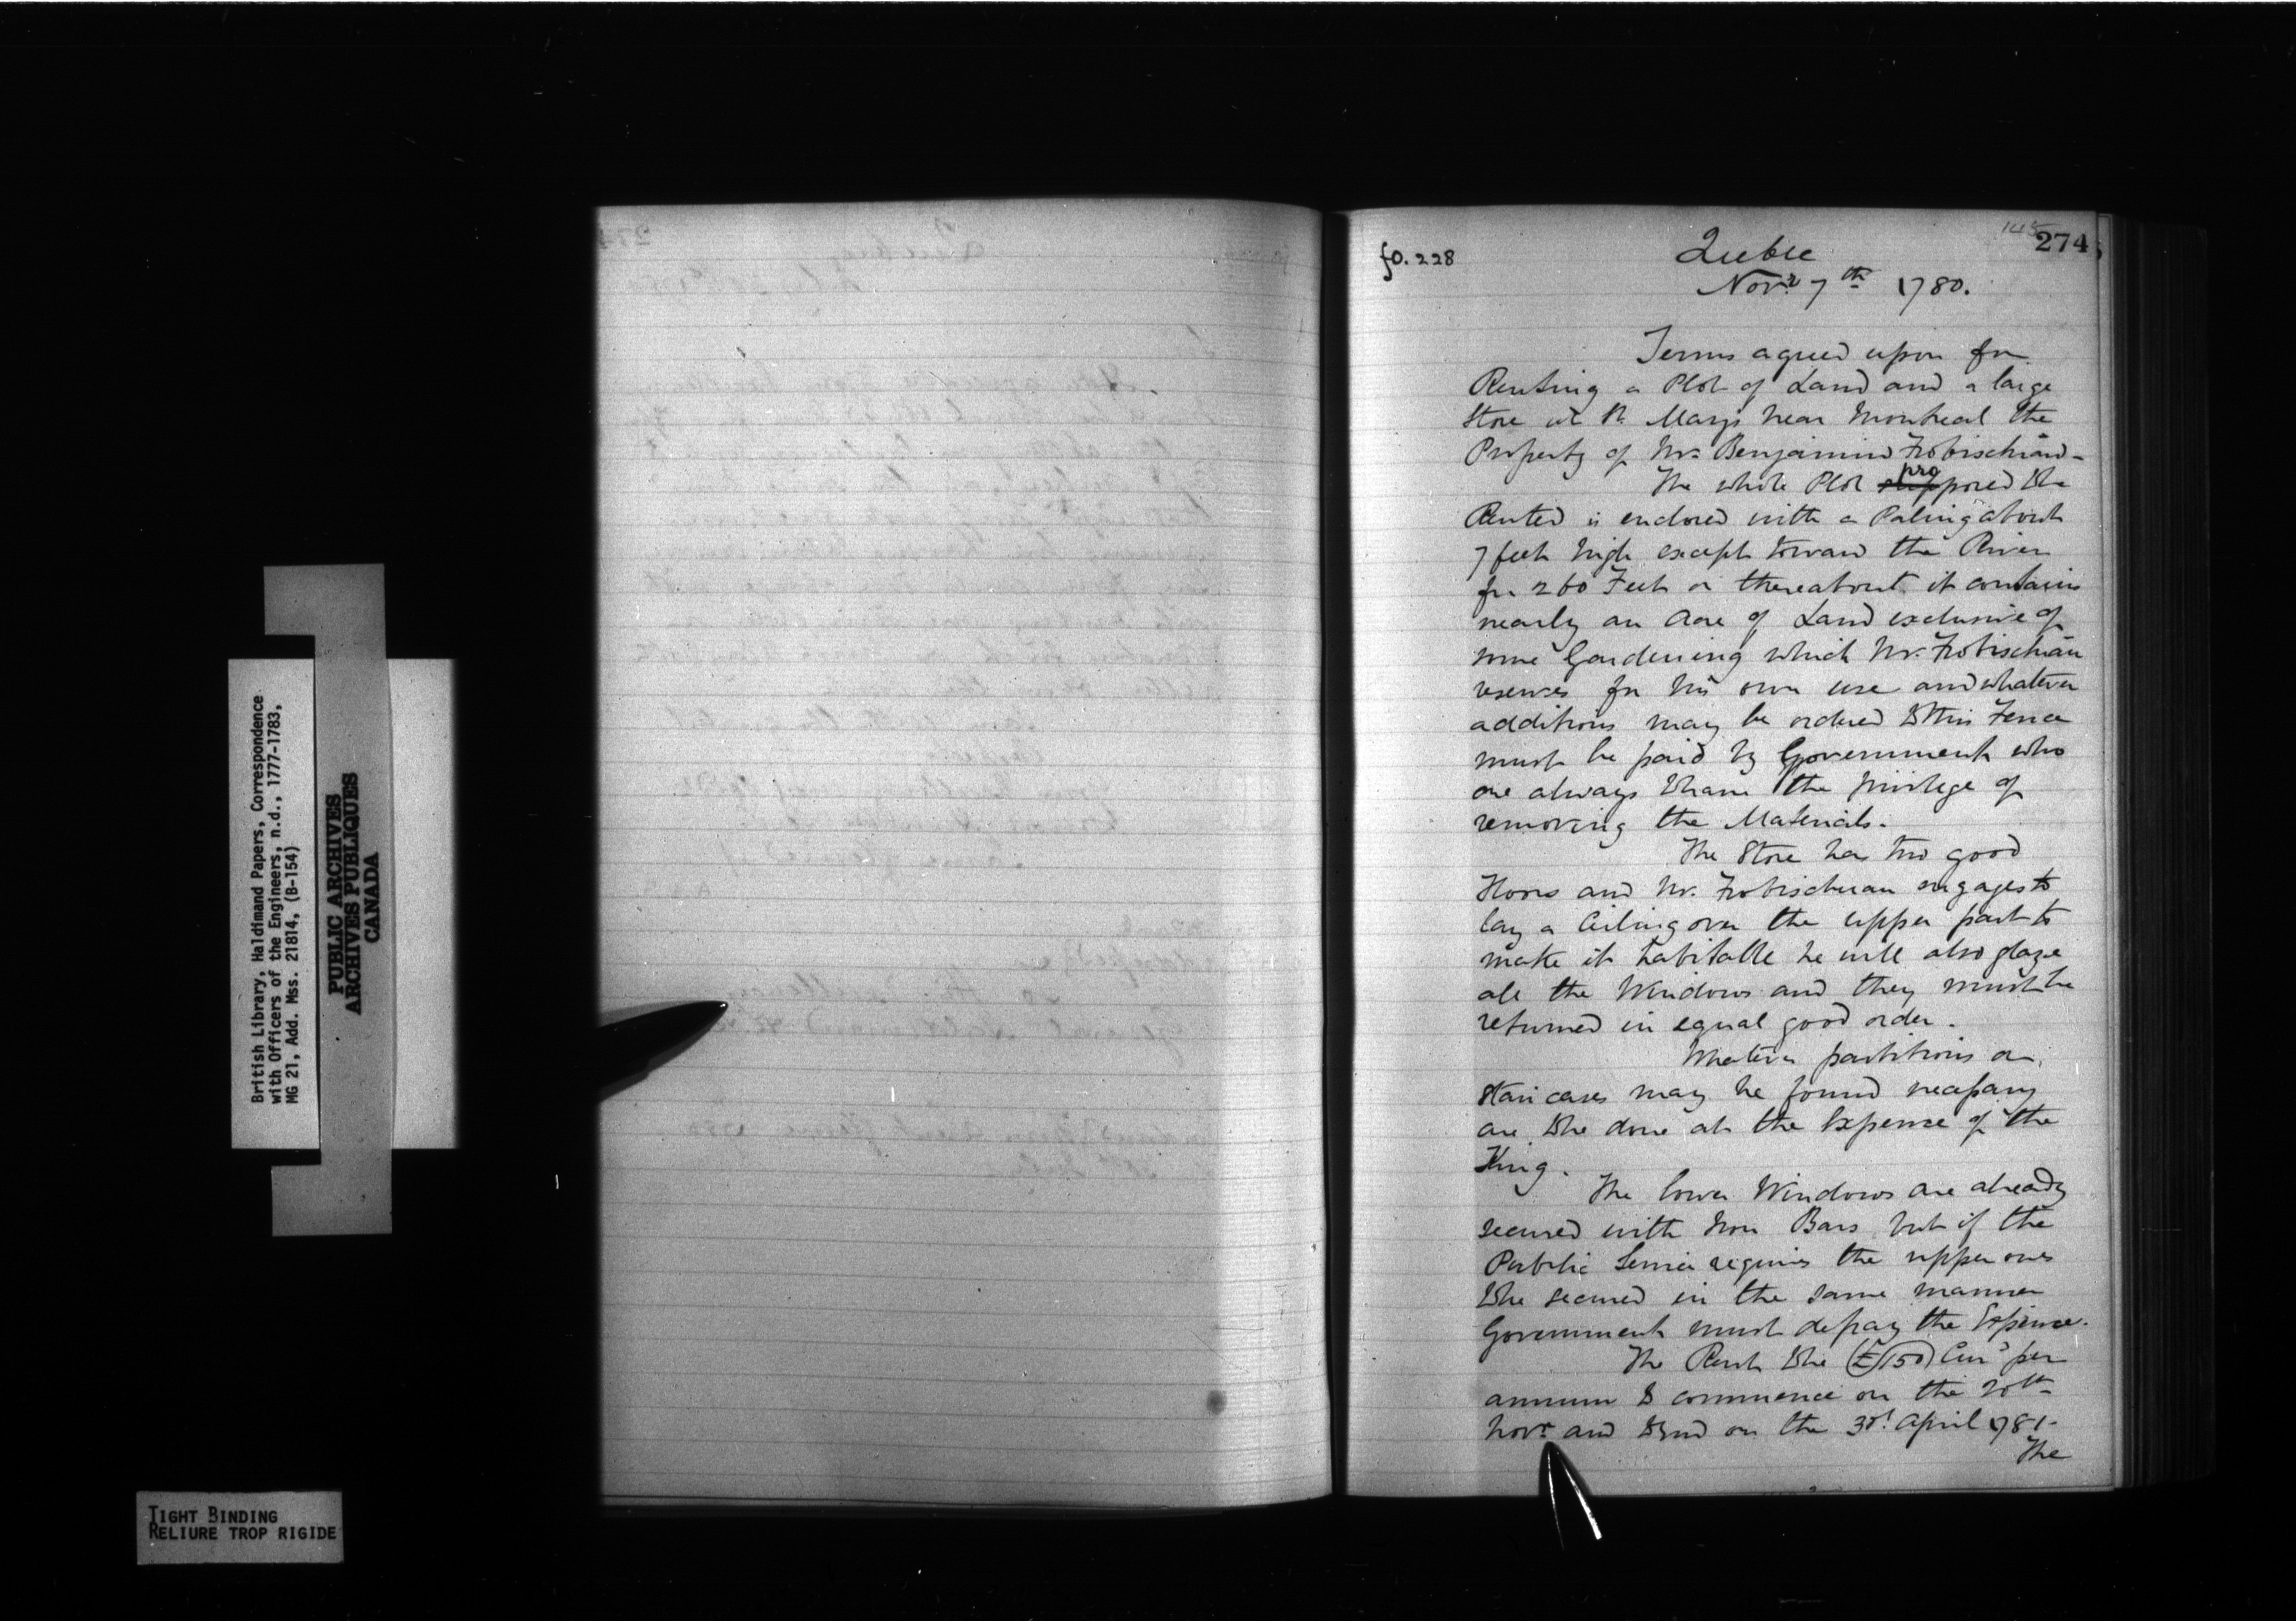 British Library, Haldimand Papers, Correspondence
with Officers of the Engineers, n.d., 1777-1783,
MG 21, Add. Mss. 21814, (B-154)
PUBLIC ARCHIVES
ARCHIVES PUBLIQUES
CANADA
TIGHT BINDING
RELIURE TROP RIGIDE
fo. 228
274
Quebec
Novr 7th 1780.
Terms agreed upon for
Renting a Plot of Land and a large
Store at St. Marys near Montreal the
Property of Mr. Benjamin Frobischian-
The whole Plot proposed to be
Rented is enclosed with a Paling about
7 feet high except toward the River
for 260 Feet or thereabout it contains
nearly an Acre of Land exclusive of
some Gardening which Mr. Frobischian
reserves for his own use and whatever
additions may be ordered to this Fence
must be paid by Government who
are always to have the privilege of
removing the Materials.
The Store has two good
Floors and Mr. Frobischian engages to
lay a Ceiling over the upper part to
make it habitable he will also glaze
all the Windows and they must be
returned in equal good order.
Whatever partitions or
Stair cases may be found necessary
are to be done at the Expence of the
King.
The lower Windows are already
secured with Iron Bars but if the
Public Service requires the upper ones
to be secured in the same manner
Government must defray the Expence.
The Rent to be £150 Curr per
annum to commence on the 20th
Novr and to end on the 30th April 1781-
The